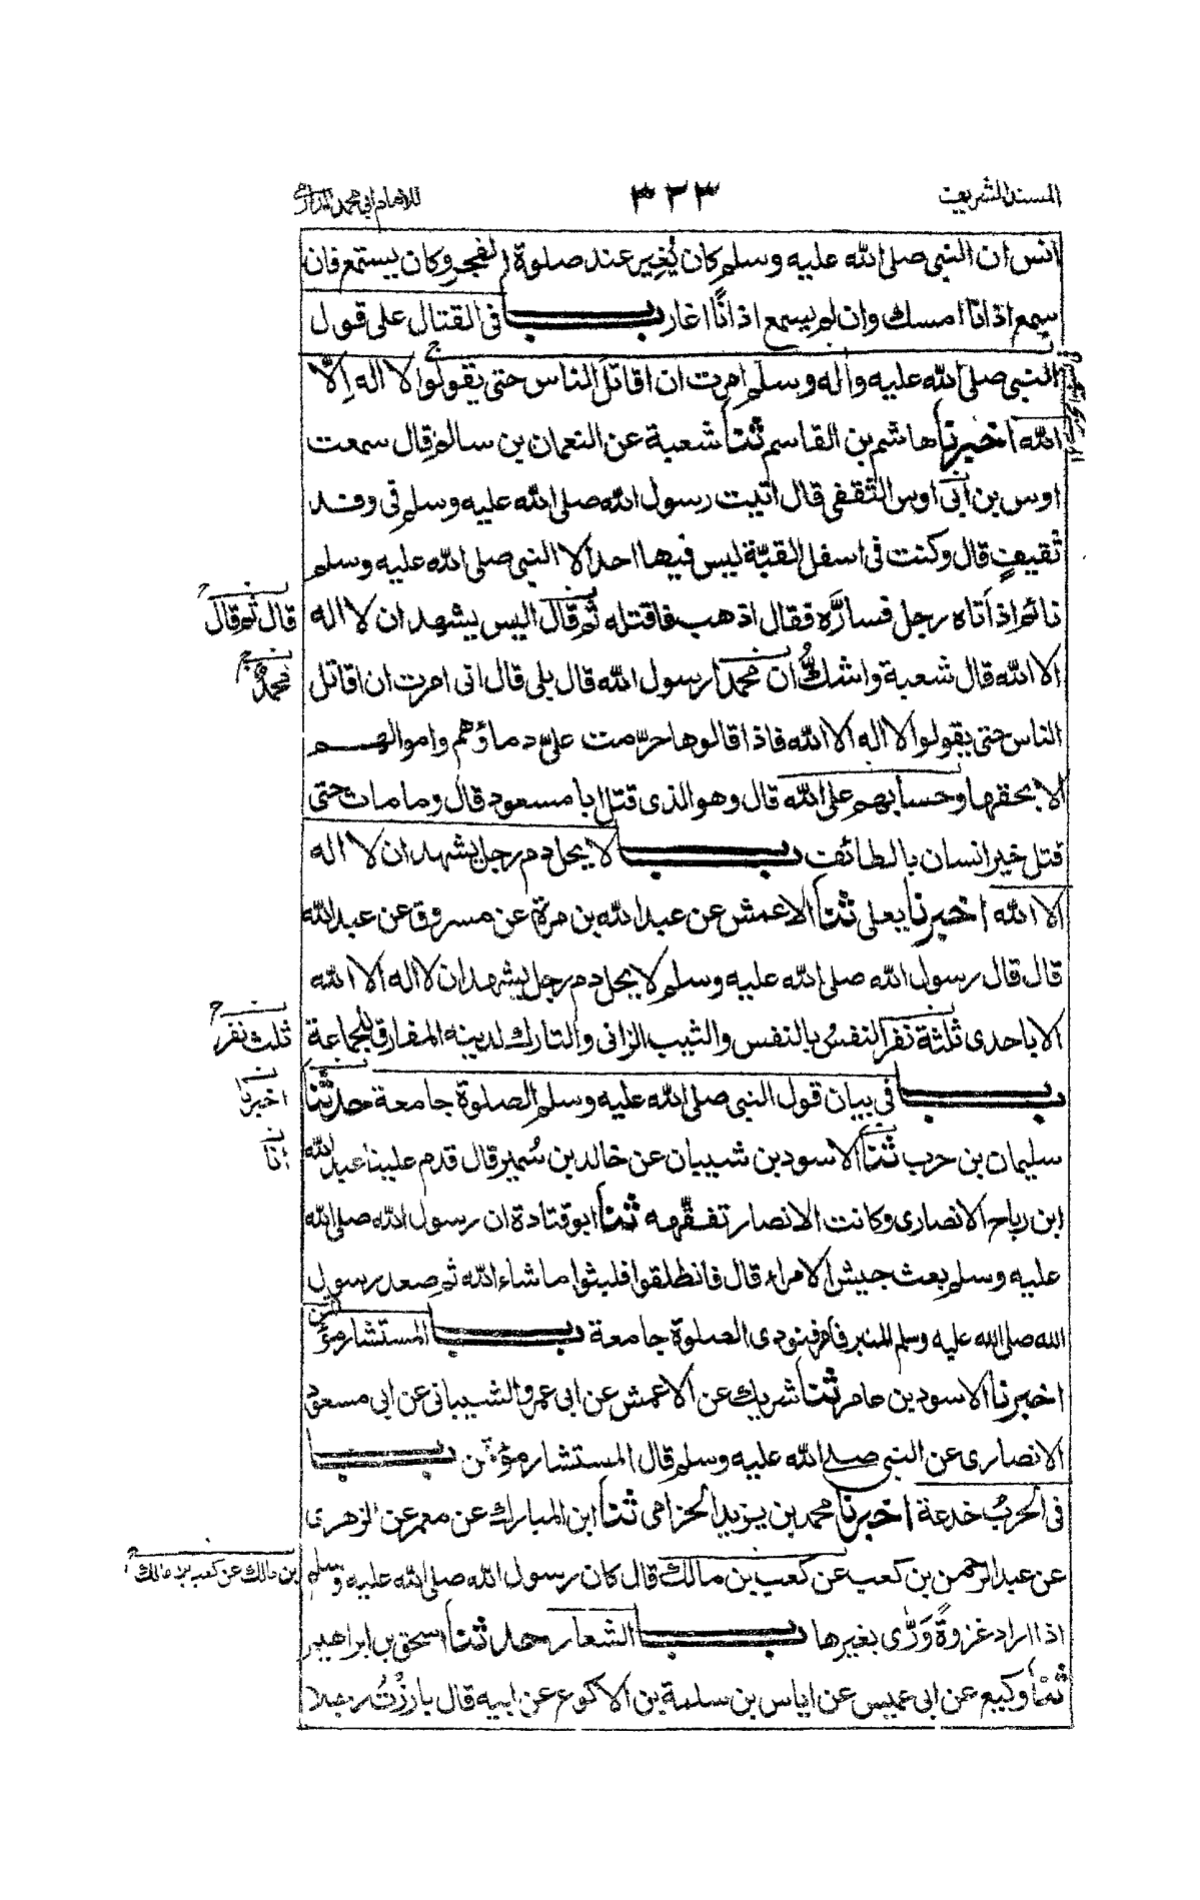 المسند الشريف ٣٢٣ للامام ابى محمد الدارمى
انس ان النبى صلى الله عليه وسلم كان يُغير عند صلوة الفجر وكان يستمع فان
سمع اذانا امسك وان لم يسمع اذانًا اغار بــــاب فى القتال على قول
النبى صلى الله عليه واٰله وسلم امرت ان اقاتل الناس حتى يقولوا لا اله اِلّا
الله اخبرنا هاشم بن القاسم ثنا شعبة عن النعمان بن سالم قال سمعت
اوس بن ابى اوس الثقفى قال اتيت رسول الله صلى الله عليه وسلم فى وفد
ثقيفٍ قال وكنت فى اسفل القبّة ليس فيها احد الا النبى صلى الله عليه وسلم
نائم اذ اَتاه رجل فسارَّه فقال اذهب فاقتله ثم قال اليس يشهد ان لا اله
قال ثم قال
الا الله قال شعبة واشكُّ ان محمدا رسول الله قال بلى قال انى امرت ان اقاتل
محمدٌ
الناس حتى يقولوا لا اله الا الله فاذا قالوها حرّمت علىّ دماؤهم واموالهم
الا بحقها وحسابهم على الله قال وهو الذى قتل ابا مسعود قال وما مات حتى
قتل خير انسان بالطائف بــــاب لا يحل دم رجل يشهد ان لا اله
الا الله اخبرنا يعلى ثنا الاعمش عن عبد الله بن مرة عن مسروق عن عبد الله
قال قال رسول الله صلى الله عليه وسلم لا يحل دم رجل يشهد ان لا اله الا الله
الا باحدى ثلثة نفر النفس بالنفس والثيب الزانى والتارك لدينه المفارق للجماعة
ثلث نفر
بــــاب فى بيان قول النبى صلى الله عليه وسلم الصلوة جامعة حدثنا
اخبرنا
سليمان بن حرب ثنا الاسود بن شيبان عن خالد بن سُمير قال قدم علينا عبد الله
انا
ابن رباح الانصارى وكانت الانصار تفقّهه ثنا ابو قتادة ان رسول الله صلى الله
عليه وسلم بعث جيش الامراء قال فانطلقوا فلبثوا ما شاء الله ثم صعد رسول
الله صلى الله عليه وسلم المنبر فامر فنودى الصلوة جامعة بــــاب المستشار مؤتمن
اخبرنا الاسود بن عامر ثنا شريك عن الاعمش عن ابى عمرو الشيبانى عن ابى مسعود
الانصارى عن النبى صلى الله عليه وسلم قال المستشار مؤتمن بــــاب
فى الحربُ خدعة اخبرنا محمد بن يزيد الحزامى ثنا ابن المبارك عن معمر عن الزهرى
عن عبد الرحمن بن كعب عن كعب بن مالك قال كان رسول الله صلى الله عليه وسلم
بن مالك عن كعب بن مالك
اذا اراد غزوةً وَرّٰى بغيرها بــــاب الشعار حدثنا اسحق بن ابراهيم
ثنا وكيع عن ابى عميس عن اياس بن سلمة بن الاكوع عن ابيه قال بارزْتُ رجلا